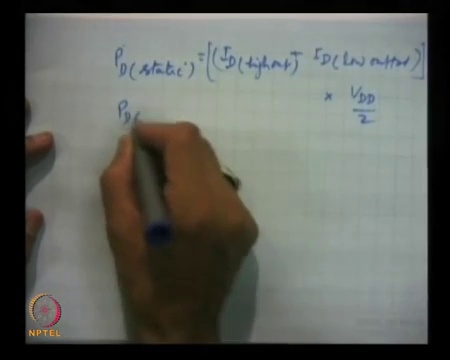 P_D(static) = [(I_D(high out) + I_D(low output)]
× V_DD / 2
P_D(
NPTEL